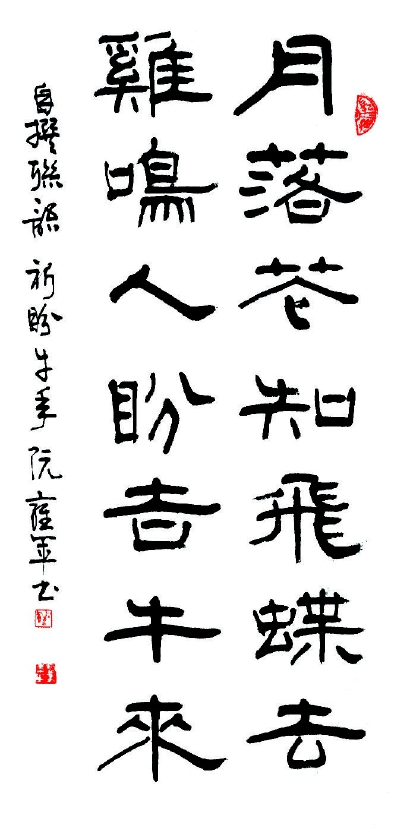 月落花知飛蝶去
雞鳴人盼吉牛來
自撰聯語 祈盼牛年 阮雍軍书